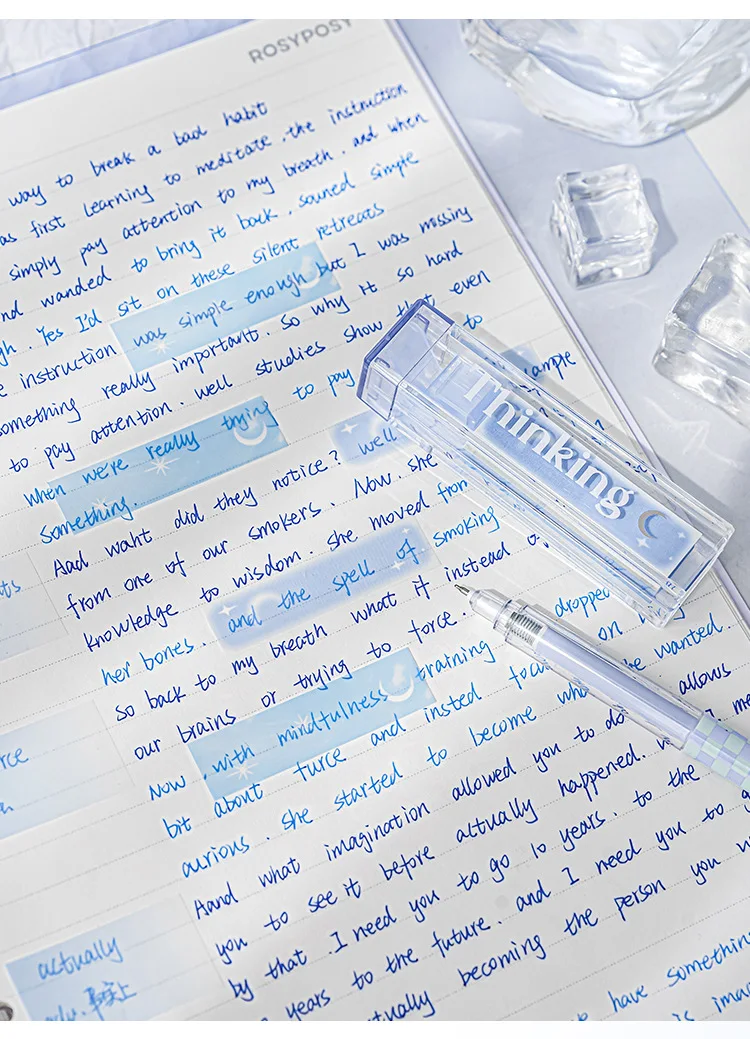 ROSYPOST
way to break a bad habit
as first learning to meditate .the instruction
simply pay attention to my breath . and when
nd wanded to bring it back . souned simple
gh . Yes I'd sit on these silent retreats
e instruction was simple enough but I was missing
something really important. So why it so hard
to pay attention. well studies show that even
When we're really trying to pay to
Something. ample
Aad waht did they notice? well
from one of our smokers . Now . she
knowledge to wisdom . she moved from
her bones . and the spell of smoking
So back to my breath what it instead o
our brains or trying to force.
Now . with mindfulness training dropped
bit about turce and insted on
curious . she started to become he wanted.
Aand what imagination allowed you to do allows
you to see it before actually happened. me
by that . I need you to go 10 years . to the
years to the future . and I need you to
tually becoming the person you w
have something
is imag
Thinking
ts
rce
actually
adv. 事实上